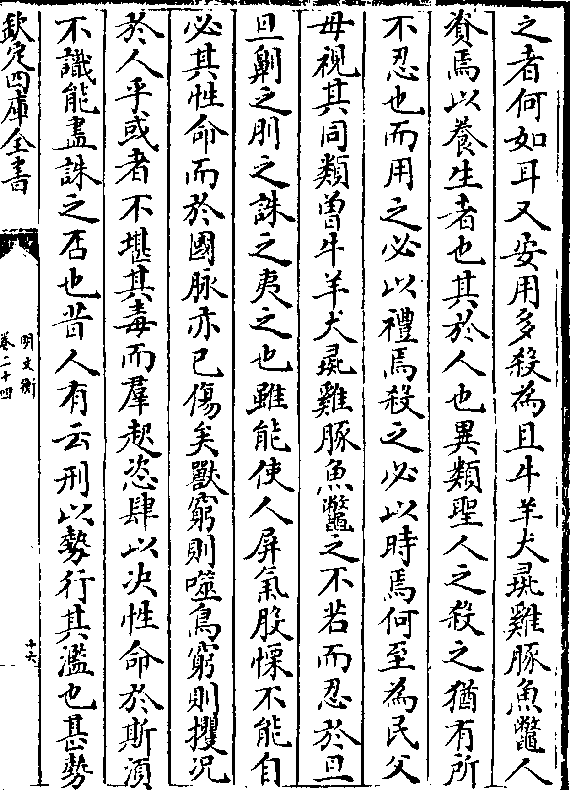 之者何如耳又安用多殺為且牛羊犬彘雞豚魚鼈人
資焉以養生者也其於人也異類聖人之殺之猶有所
不忍也而用之必以禮焉殺之必以時焉何至為民父
母視其同類曽牛羊犬彘雞豚魚鼈之不若而忍於旦
旦劓之刖之誅之夷之也雖能使人屏氣股慄不能自
必其性命而於國脉亦已傷矣獸窮則噬鳥窮則攫況
於人乎或者不堪其毒而羣起恣肆以决性命於斯湏
不識能盡誅之否也昔人有云刑以勢行其濫也甚勢
欽定四庫全書
明文衡
卷二十四
十六